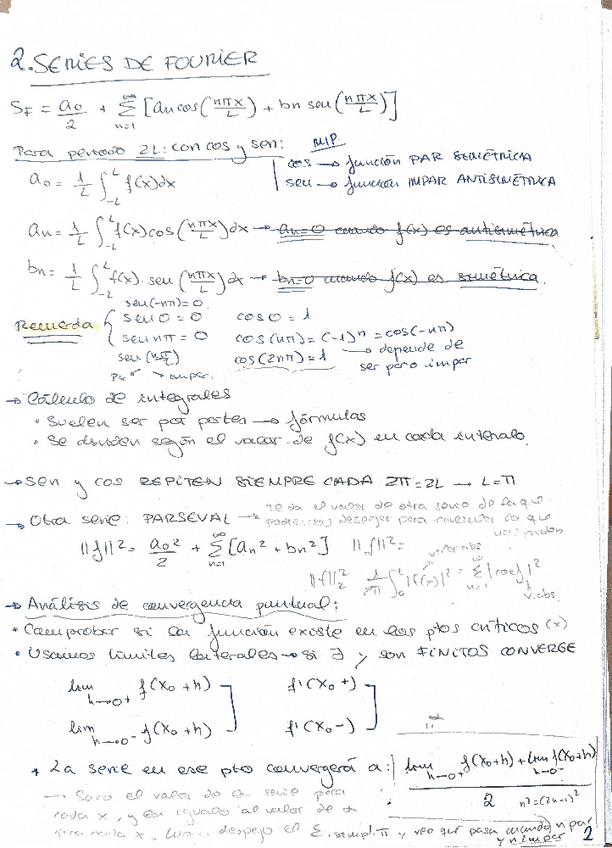 2. SERIES DE FOURIER
S_F = a₀/2 + Σ_{n=1}^{∞} [an cos(nπx/L) + bn sen(nπx/L)]
Para periodo 2L: con cos y sen: MIP.
cos → función PAR SIMÉTRICA
sen → función IMPAR ANTISIMÉTRICA
a₀ = 1/L ∫_{-L}^{L} f(x)dx
an = 1/L ∫_{-L}^{L} f(x) cos(nπx/L)dx → an=0 cuando f(x) es antisimétrica
bn = 1/L ∫_{-L}^{L} f(x). sen(nπx/L)dx → bn=0 cuando f(x) es simétrica.
Recuerda
sen(-nπ)=0
sen0=0 cos0=1
sen nπ=0 cos(nπ)=(-1)ⁿ=cos(-nπ)
sen(nπ/2) cos(2nπ)=1 → depende de
ser par o impar
impar.
→ Cálculo de integrales
• Suelen ser por partes → fórmulas
• Se dividen según el valor de f(x) en cada intervalo.
→ Sen y cos REPITEN SIEMPRE CADA 2π=2L → L=π
→ Otra serie: PARSEVAL → te da el valor de otra serie de la que
podemos despejar para calcular lo que
||f||² = a₀²/2 + Σ_{n=1}^{∞} [an² + bn²] ||f||²=
v.abs
||f||²₂ 1/2π ∫₀ |f(x)|² = Σ_{n=1}^{∞} |coef|²
v.abs.
→ Análisis de convergencia puntual:
• Comprobar si la función existe en los ptos críticos (x)
• Usamos límites laterales → si ∃ y son FINITOS CONVERGE
lim_{h→0⁺} f(x₀+h) f'(x₀+)
lim_{h→0⁻} f(x₀+h) f'(x₀-)
• La serie en ese pto convergerá a: lim_{h→0⁺} f(x₀+h) + lim_{h→0⁻} f(x₀+h)
2 n²=(2n-1)²
→ Saco el valor de la serie para
cada x, y lo igualo al valor de
para cada x. Luego despejo el Σ. y veo que pasa cuando n par
y n impar
2